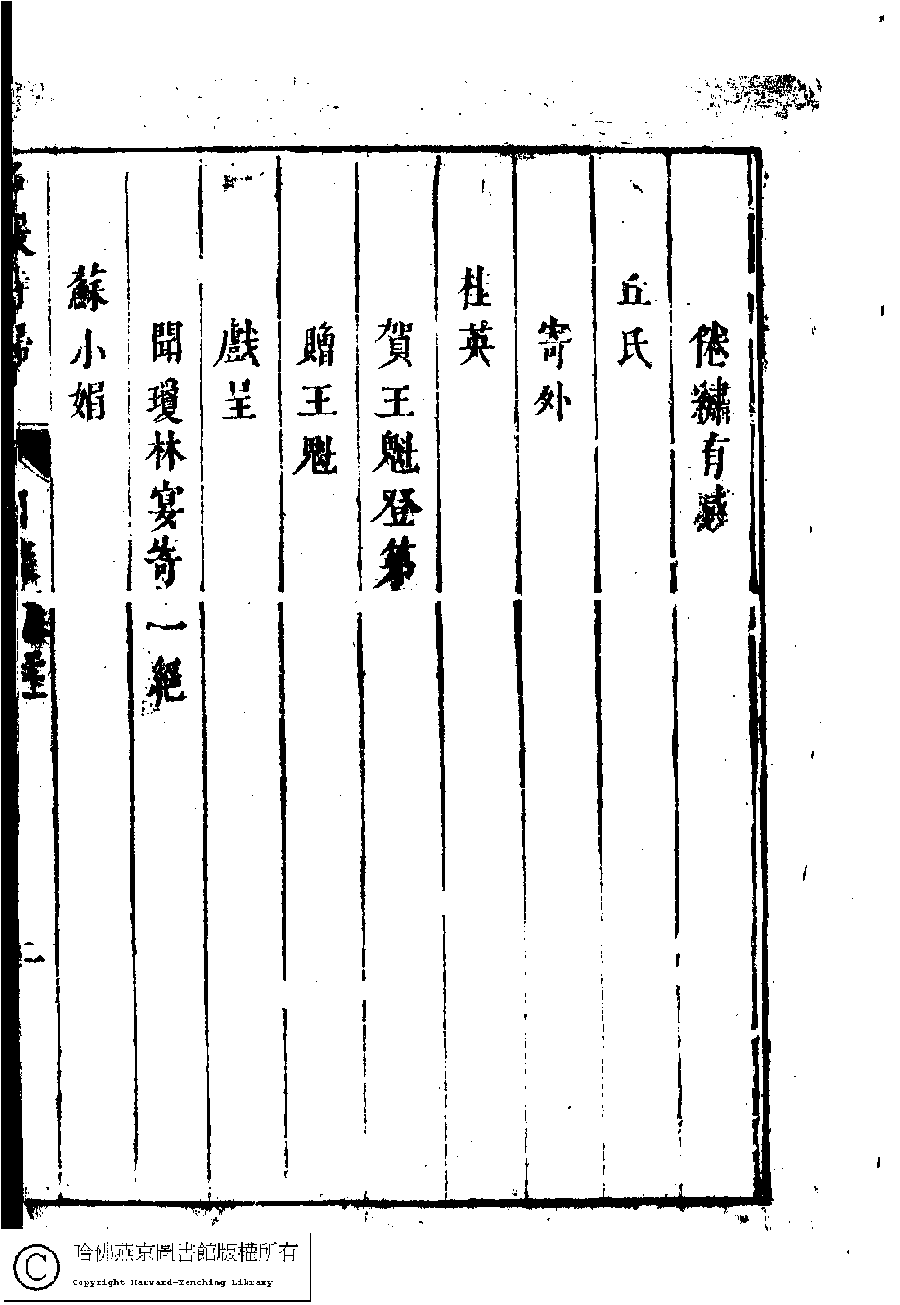 倦繡有感
丘氏
寄外
桂英
賀王魁登第
贈王魁
戲呈
聞瓊林宴寄一絕
蘇小娟
二
哈佛燕京圖書館版權所有
Copyright Harvard-Yenching Library